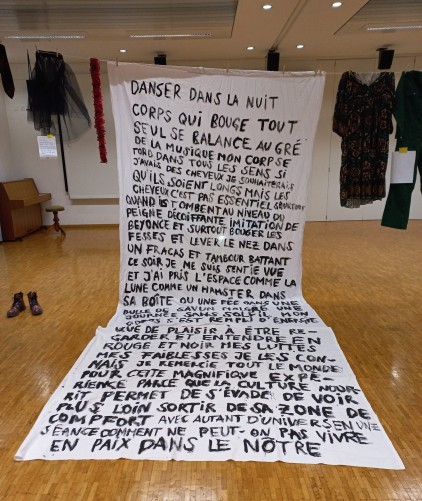 DANSER DANS LA NUIT
CORPS QUI BOUGE TOUT
SEUL SE BALANCE AU GRÉ
DE LA MUSIQUE MON CORPS SE
TORD DANS TOUS LES SENS SI
J'AVAIS DES CHEVEUX JE SOUHAITERAIS
QU'ILS SOIENT LONGS MAIS LES
CHEVEUX C'EST PAS ESSENTIEL
QUAND ILS TOMBENT AU NIVEAU DU
PEIGNE DÉCOIFFANTE IMITATION DE
BEYONCE ET SURTOUT BOUGER LES
FESSES ET LEVER LE NEZ DANS
UN FRACAS ET TAMBOUR BATTANT
CE SOIR JE ME SUIS SENTIE VUE
ET J'AI PRIS L'ESPACE COMME LA
LUNE COMME UN HAMSTER DANS
SA BOÎTE OU UNE FÉE DANS UNE
BULLE DE SAVON MALGRÉ UNE
JOURNÉE SANS SOLEIL MON
CORPS S'EST REMPLI D'ÉNERGIE
QUE DE PLAISIR À ÊTRE RE-
GARDER ET ENTENDRE EN
ROUGE ET NOIR MES LUTTES
MES FAIBLESSES JE LES CON-
NAIS JE REMERCIE TOUT LE MONDE
POUR CETTE MAGNIFIQUE EXPÉ-
RIENCE PARCE QUE LA CULTURE NOUR-
RIT PERMET DE S'ÉVADE DE VOIR
PLUS LOIN SORTIR DE SA ZONE DE
COMPFORT AVEC AUTANT D'UNIVERS EN UNE
SÉANCE COMMENT NE PEUT-ON PAS VIVRE
EN PAIX DANS LE NÔTRE